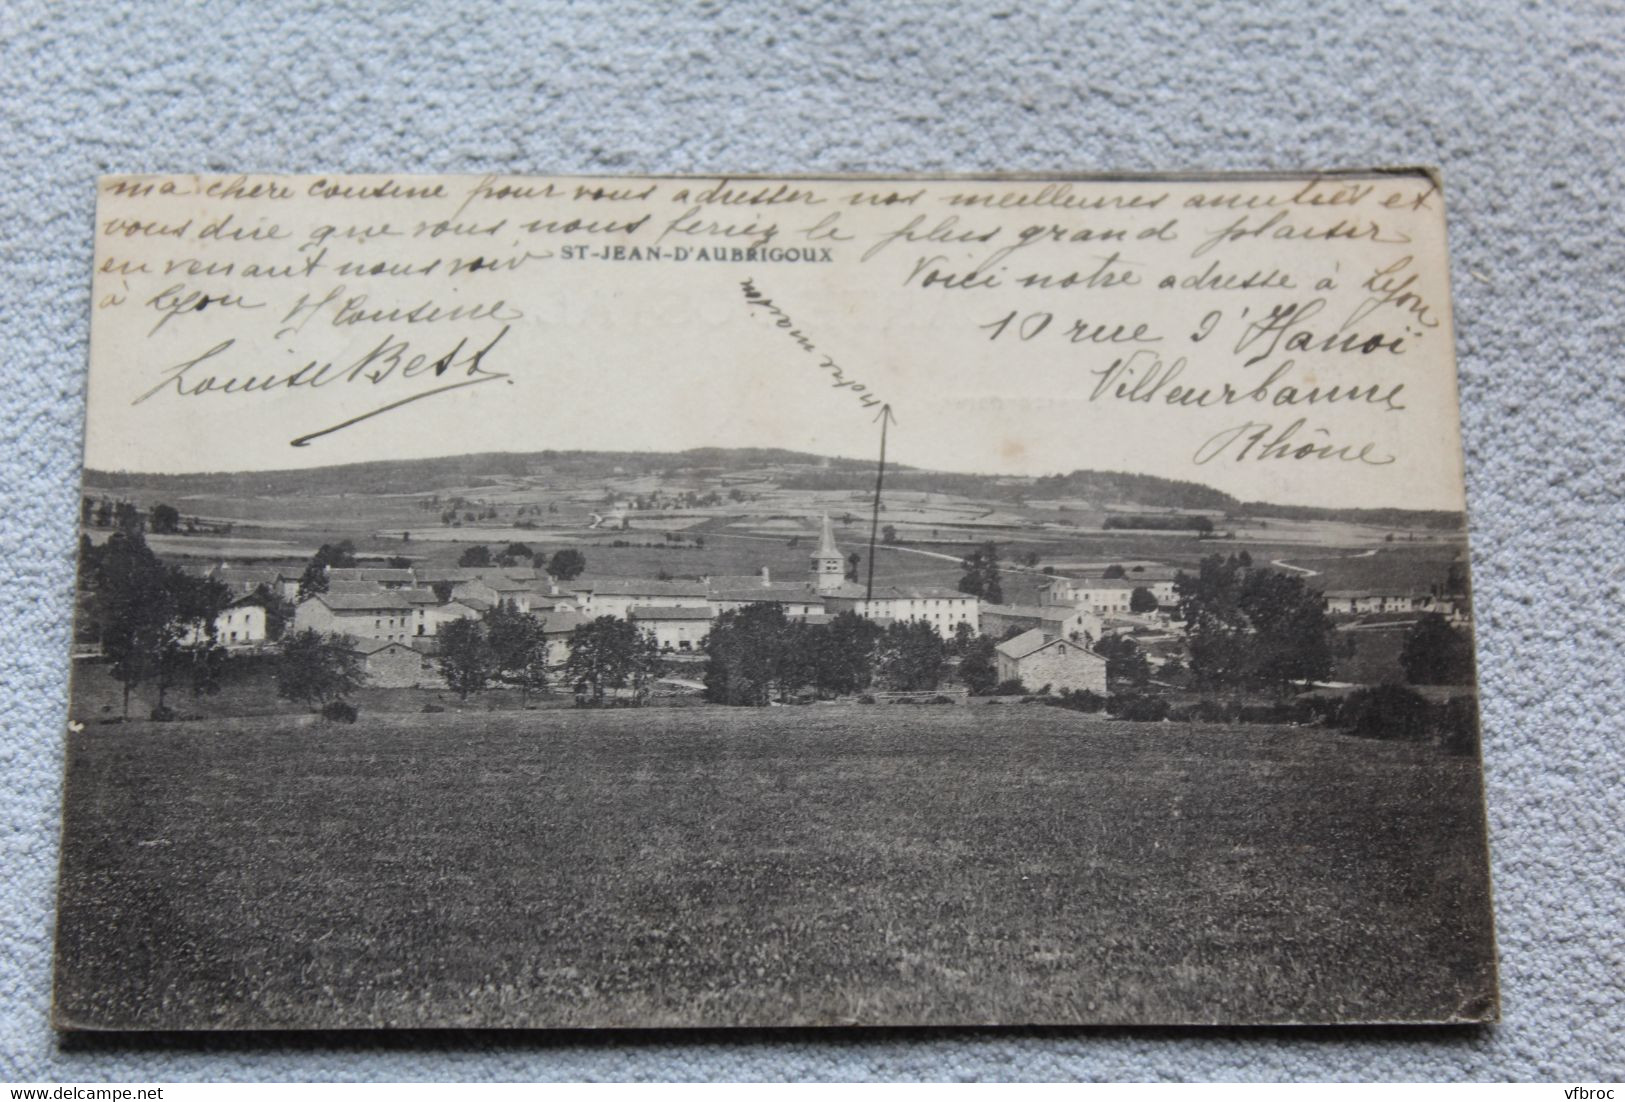 ma chère cousine pour vous adresser nos meilleures amitiés et
vous dire que vous nous feriez le plus grand plaisir
en venant nous voir
à Lyon Cousine
Louise Best
ST-JEAN-D'AUBRIGOUX
Voici notre adresse à Lyon
10 rue d'Hanoï
Villeurbanne
Rhône
notre maison
delcampe.net
vfbroc